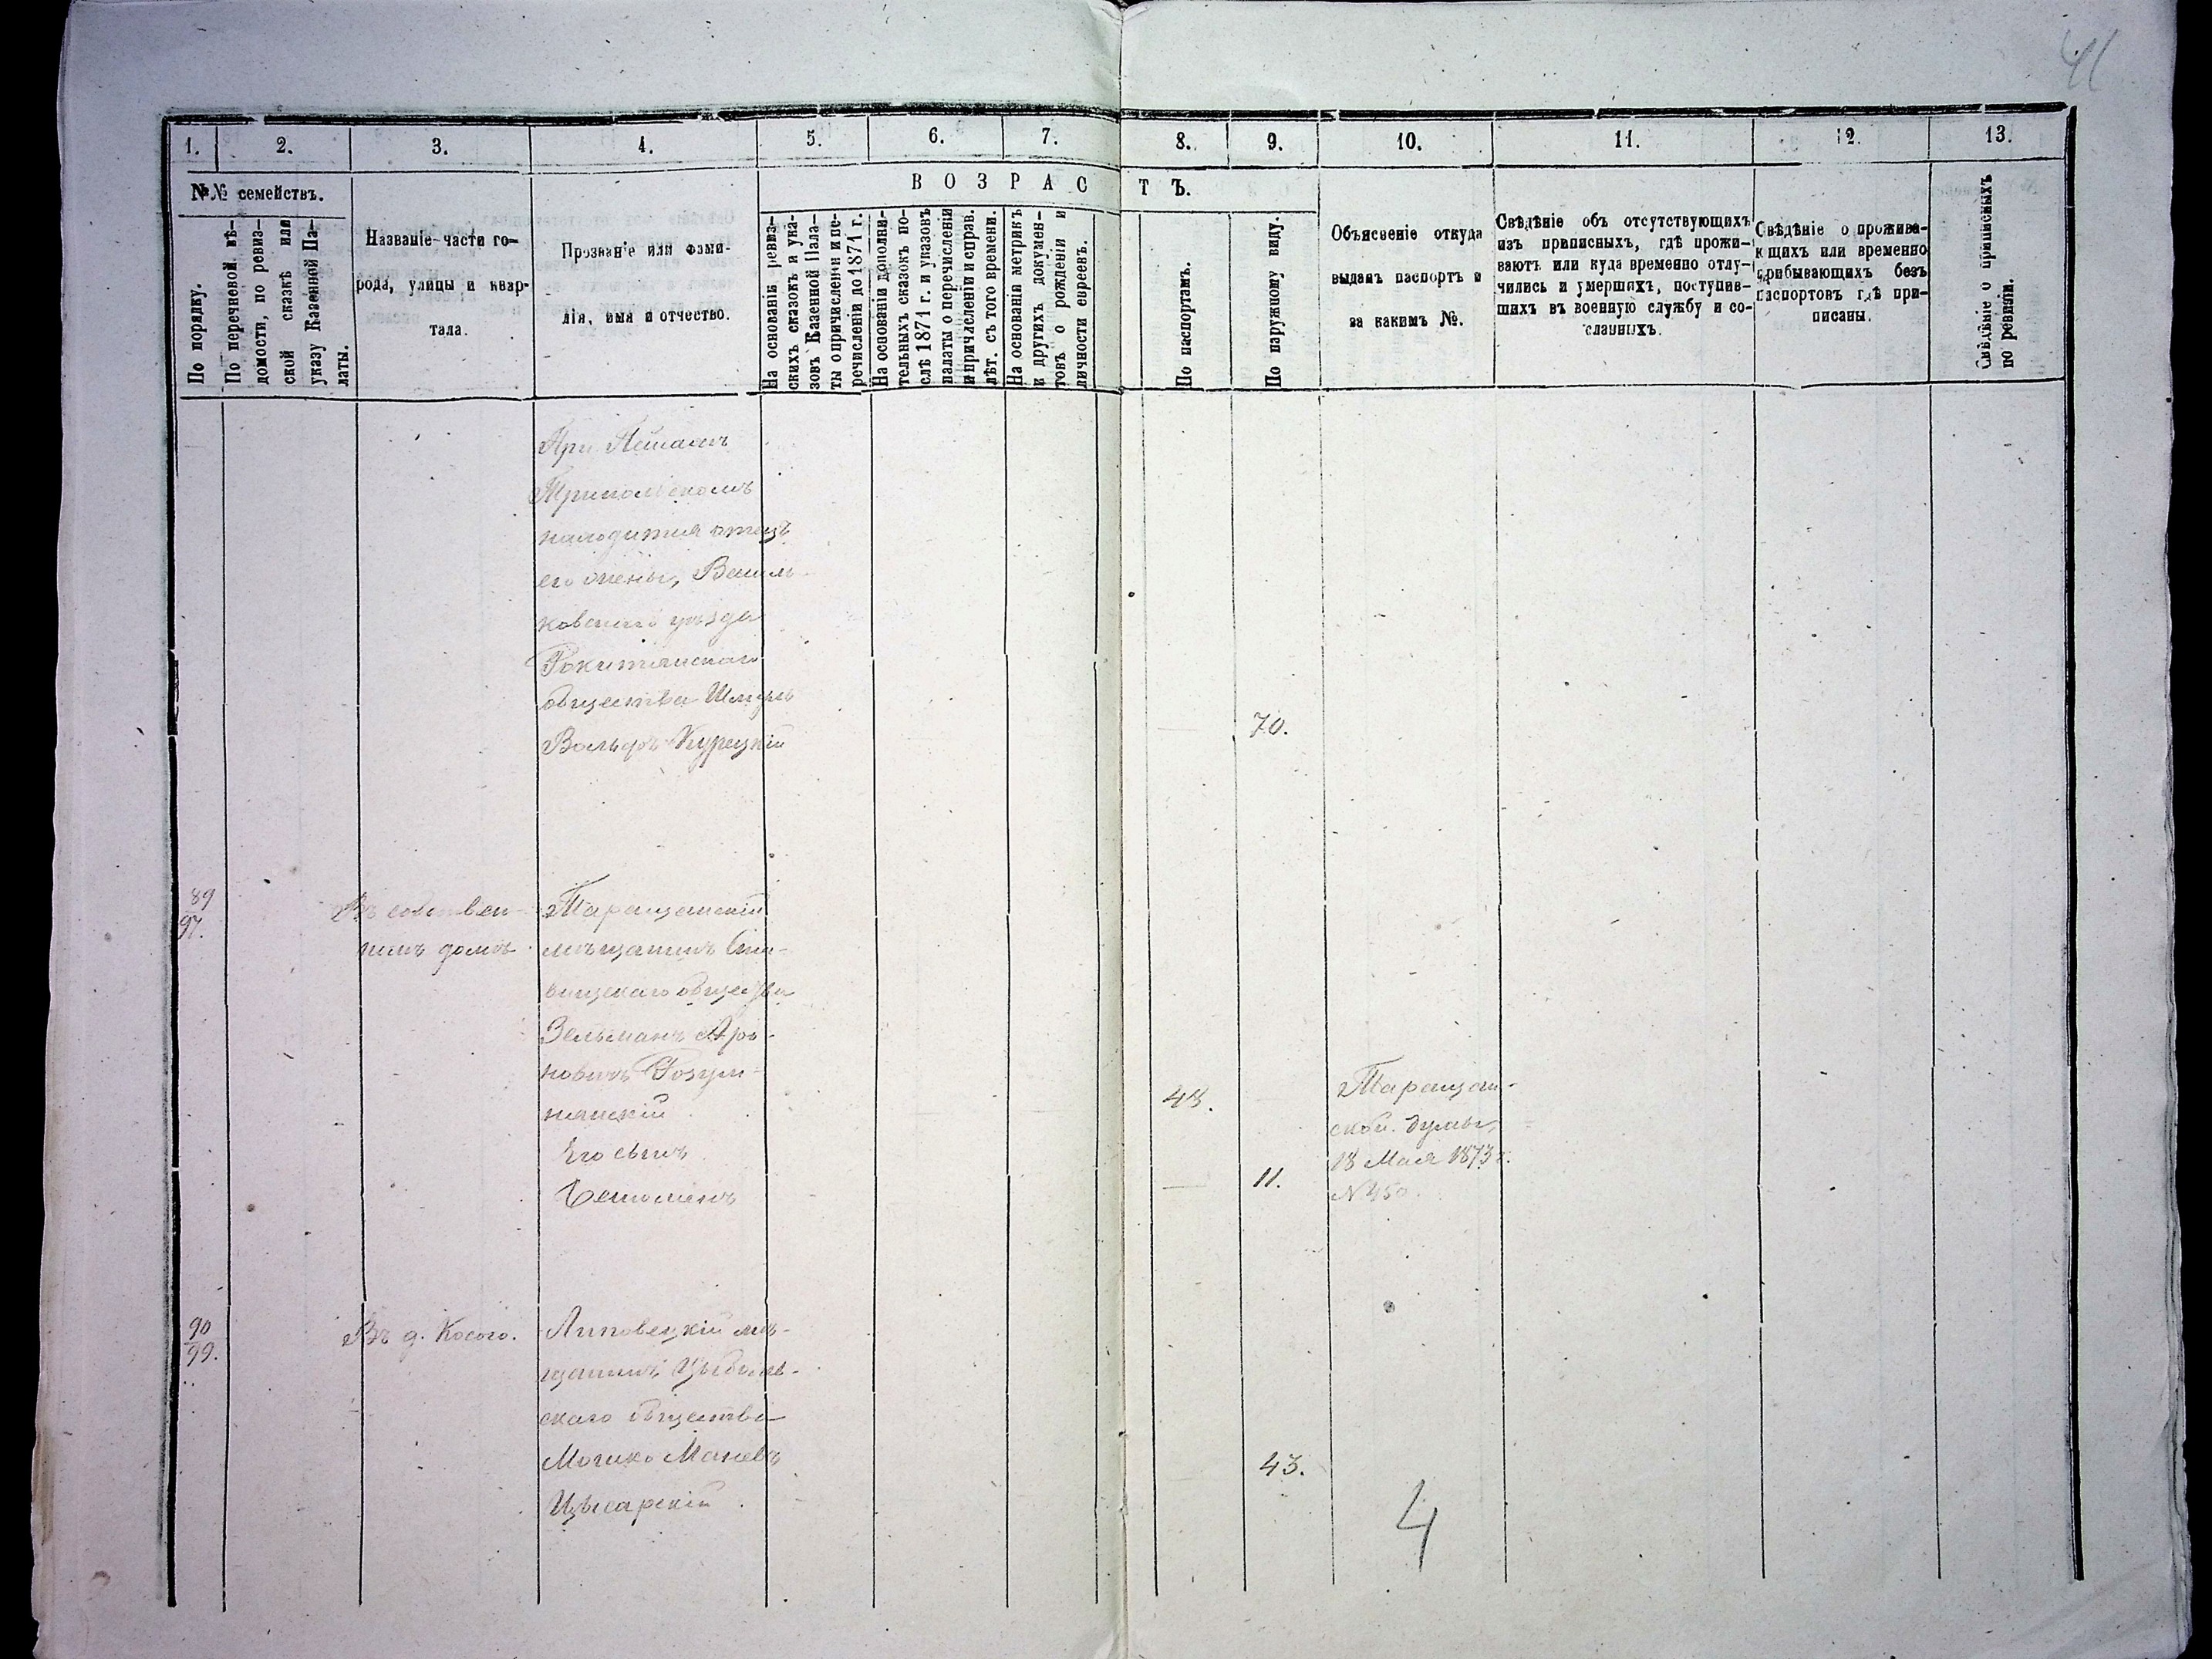 41
1. 2. 3. 4. 5. 6. 7. 8. 9. 10. 11. 12. 13.
№№ семействъ.
В О З Р А С Т Ъ.
По порядку.
По перечневой вѣ-
домости, по ревиз-
ской сказкѣ или
указу Казенной Па-
латы.
Названіе части го-
рода, улицы и квар-
тала.
Прозваніе или фами-
лія, имя и отчество.
На основаніи ревиз-
скихъ сказокъ и ука-
зовъ Казенной Пала-
ты о причисленіи и пе-
речисленіи до 1871 г.
На основаніи дополни-
тельныхъ сказокъ по-
слѣ 1871 г. и указовъ
палаты о перечисленіи
и причисленіи и справ.
лѣт. съ того времени.
На основаніи метрикъ
и другихъ докумен-
товъ о рожденіи и
личности евреевъ.
По паспортамъ.
По наружному виду.
Объясненіе откуда
выданъ паспортъ и
за какимъ №.
Свѣдѣніе объ отсутствующихъ
изъ приписныхъ, гдѣ прожи-
ваютъ или куда временно отлу-
чились и умершихъ, поступив-
шихъ въ военную службу и со-
сланныхъ.
Свѣдѣніе о прожива-
ющихъ или временно
прибывающихъ безъ
паспортовъ гдѣ при-
писаны.
Свѣдѣніе о приписныхъ
по ревизіи.
При
находится отецъ
его жены, Василь-
ковскаго уѣзда
Рокитянскаго
общества Шмуль
Вольфъ Курецкій
70.
89
97.
Въ собствен-
номъ домѣ
Таращанскій
мѣщанинъ
общества
Зельманъ Аро-
новичъ
Его сынъ
48.
11.
Таращан-
ской думы,
18 Мая 1873 г.
№ 450.
90
99.
Въ д. Косого.
Липовецкій мѣ-
щанинъ Цыбулев-
скаго общества
Мошко Маневъ
Цысарскій
43.
4